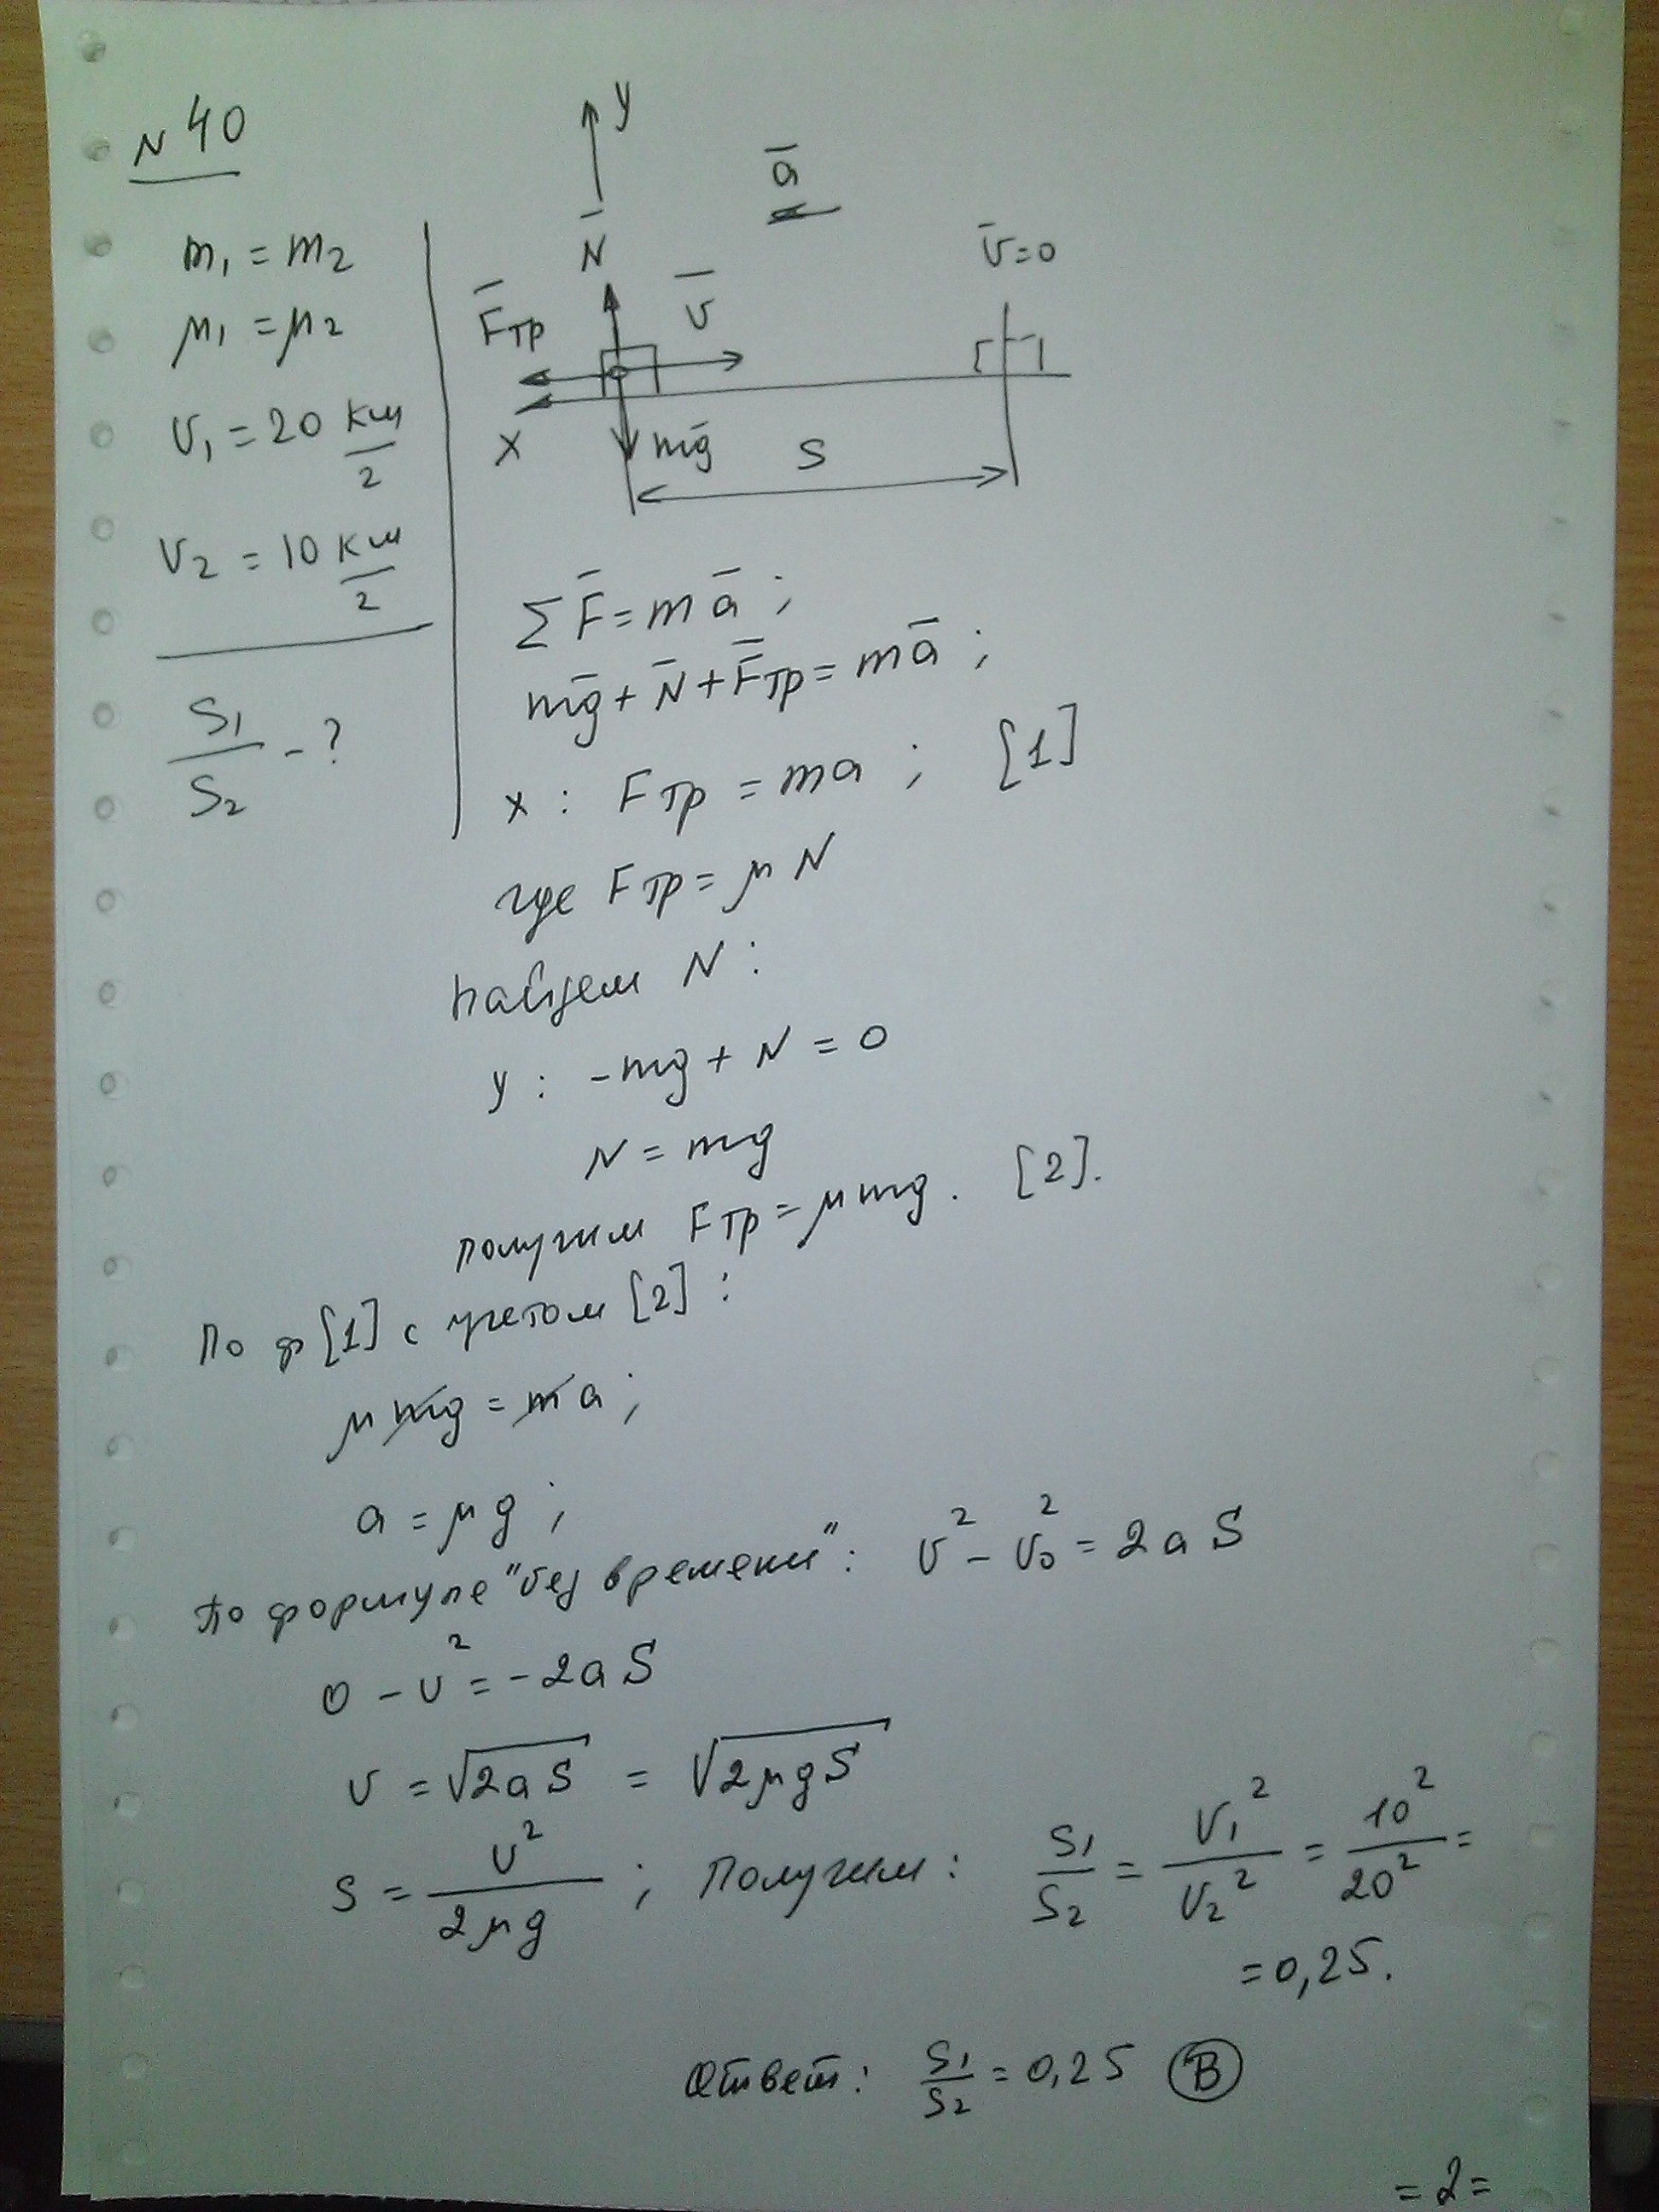 N 40
m₁ = m₂
μ₁ = μ₂
V₁ = 20 км/г
V₂ = 10 км/г
S₁/S₂ - ?
y
a̅
N̅
F̅тр
V̅
V̅=0
x
mg̅
S
ΣF̅ = ma̅ ;
mg̅ + N̅ + F̅тр = ma̅ ;
x : Fтр = ma ; [1]
где Fтр = μN
Найдем N :
y : -mg + N = 0
N = mg
получим Fтр = μmg. [2].
По ф [1] с учетом [2] :
μmg = ma ;
a = μg ;
По формуле "без времени": V² - V₀² = 2aS
0 - V² = -2aS
V = √2aS = √2μgS
S = V²/2μg ; Получим : S₁/S₂ = V₁²/V₂² = 10²/20² =
= 0,25.
Ответ: S₁/S₂ = 0,25 B
= 2 =